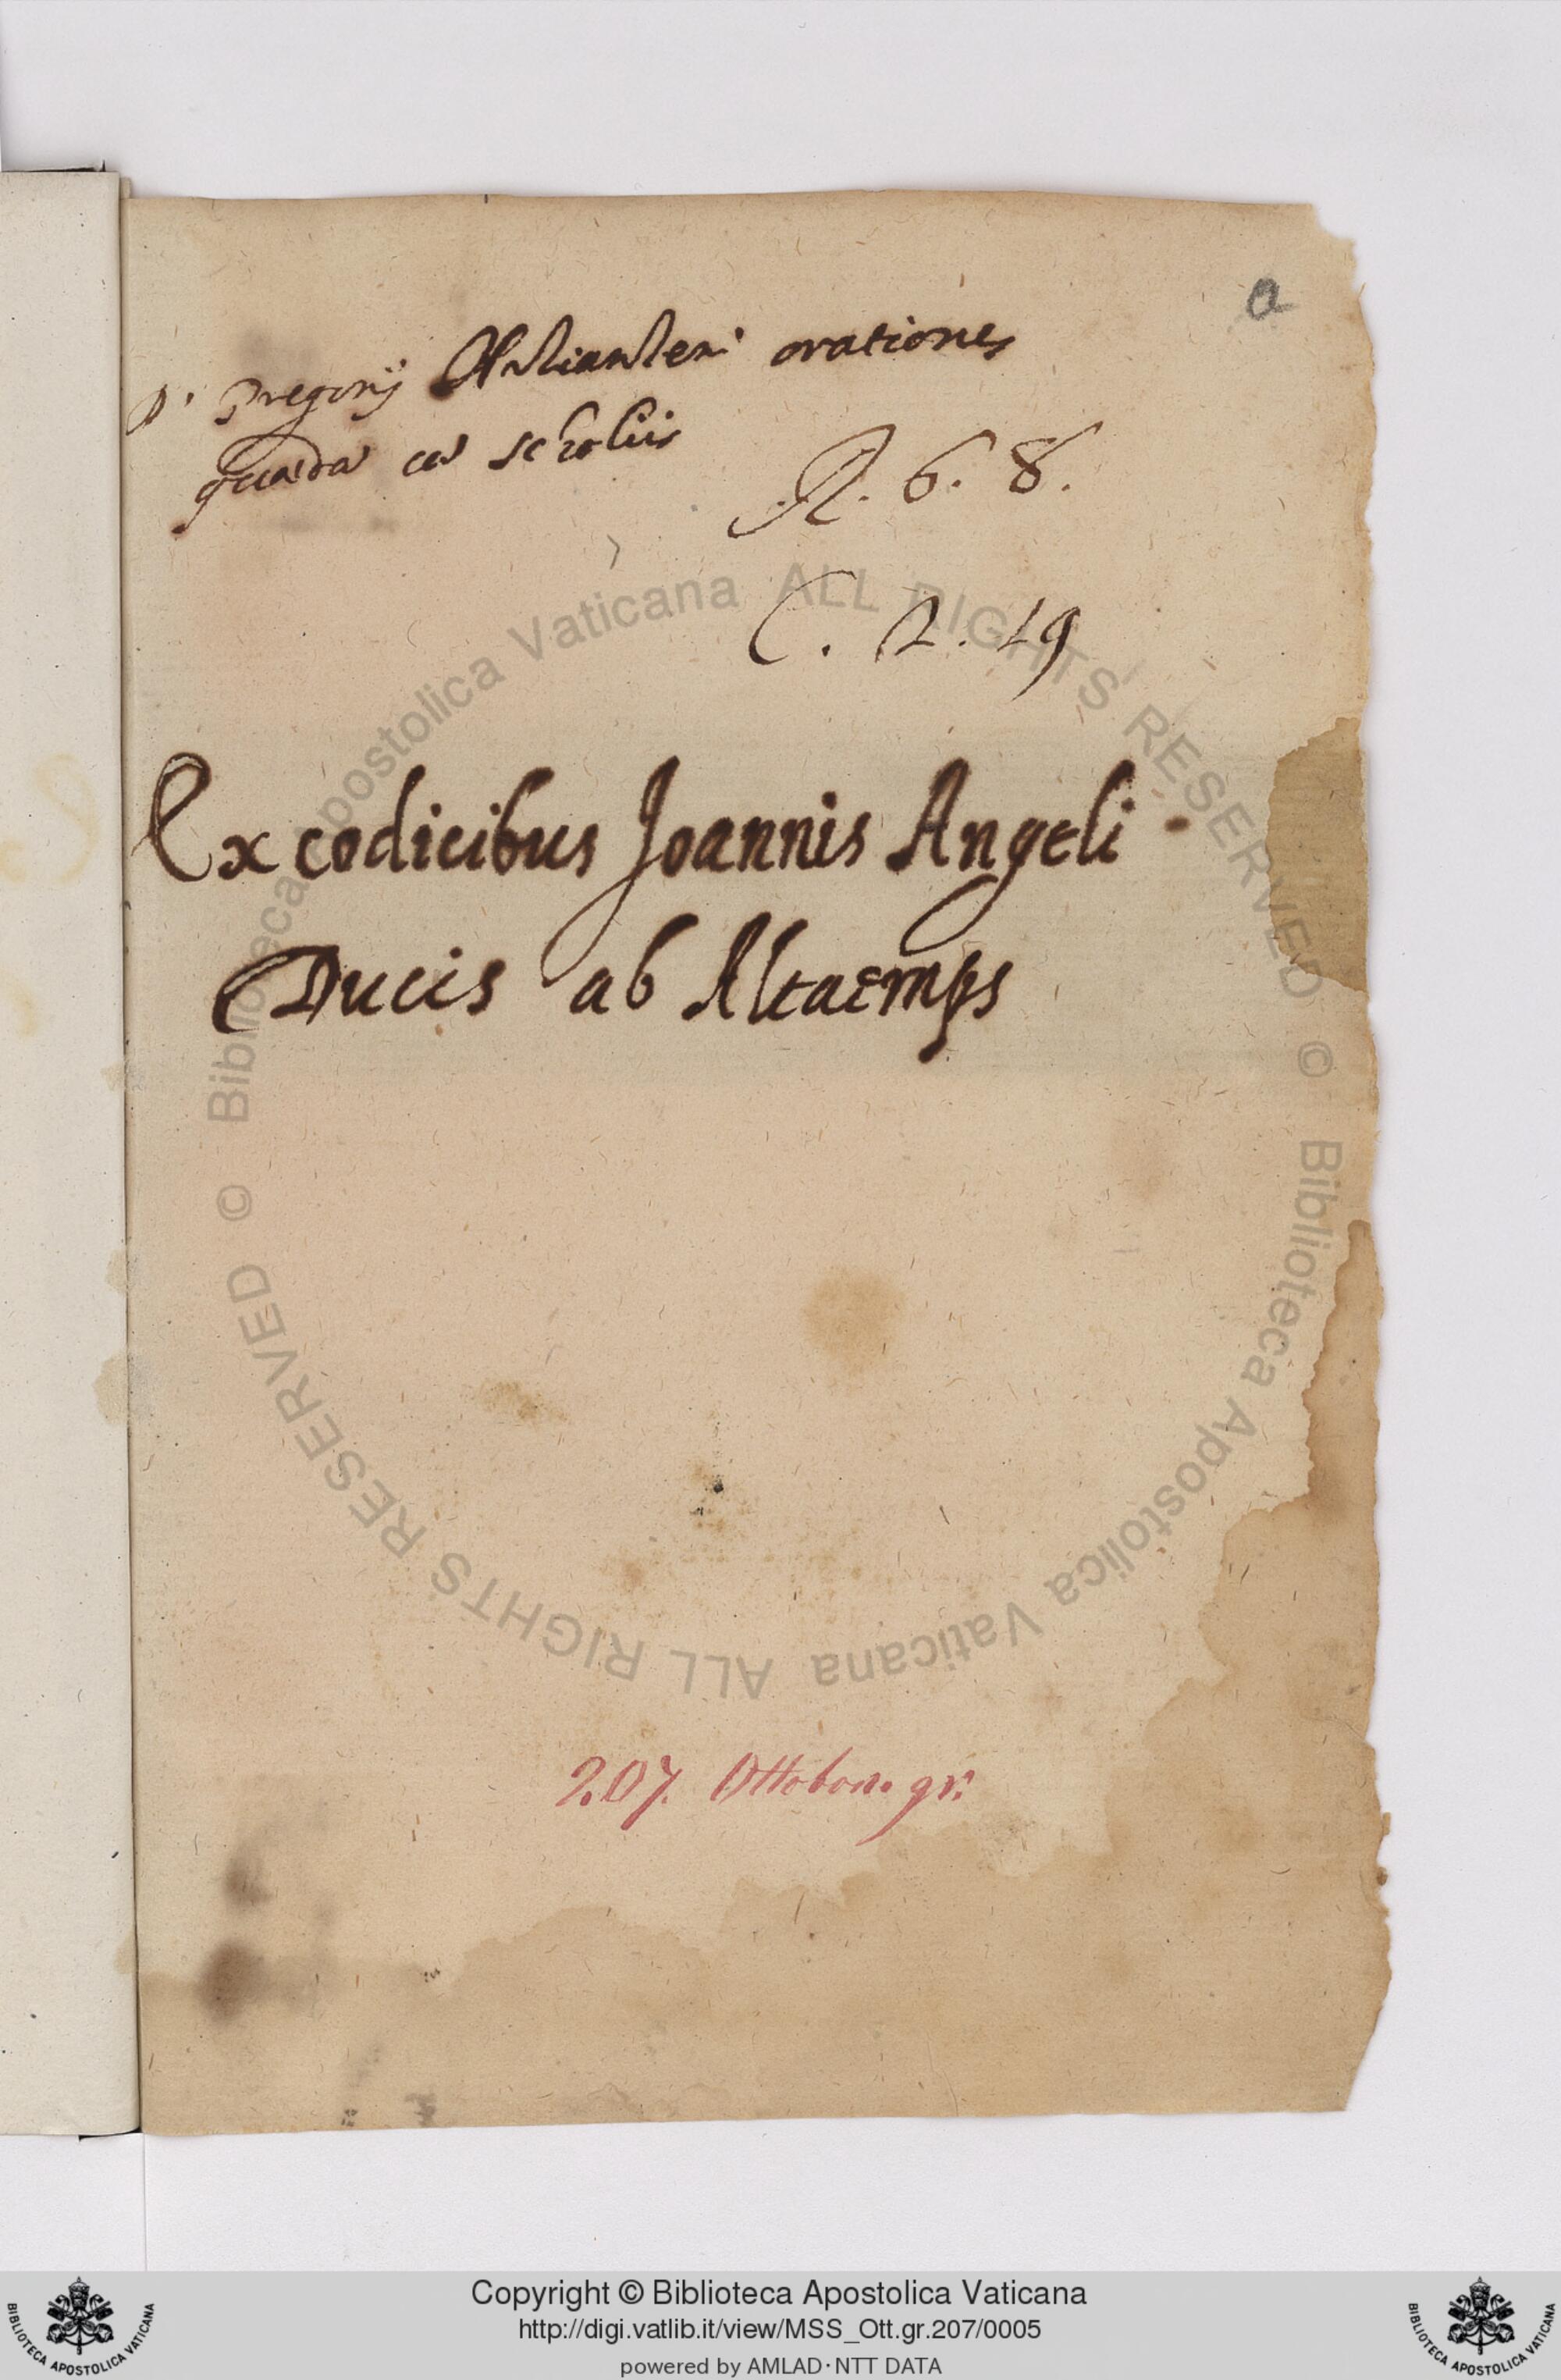 a
D. Gregorij Nazianzeni orationes
quaedã cũ scholiis
R. 6. 8.
C. 2. 19
Ex codicibus Joannis Angeli
Ducis ab Altaemps
207. Ottobon. gr.
© Biblioteca Apostolica Vaticana ALL RIGHTS RESERVED © Biblioteca Apostolica Vaticana ALL RIGHTS RESERVED
Copyright © Biblioteca Apostolica Vaticana
http://digi.vatlib.it/view/MSS_Ott.gr.207/0005
powered by AMLAD·NTT DATA
BIBLIOTECA APOSTOLICA VATICANA
BIBLIOTECA APOSTOLICA VATICANA